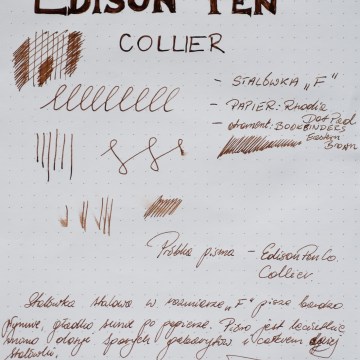 EDISON PEN
COLLIER
- STALÓWKA „F"
- PAPIER: Rhodia
Dot Pad
- atrament: BOOKBINDERS
Eastern
Brown
Próbka pisma - Edison Pen Co.
Collier
Stalówka stalowa w rozmiarze „F" pisze bardzo
płynnie, gładko sunie po papierze. Pióro jest
mimo dosyć sporych gabarytów i całkiem dużej
stalówki.